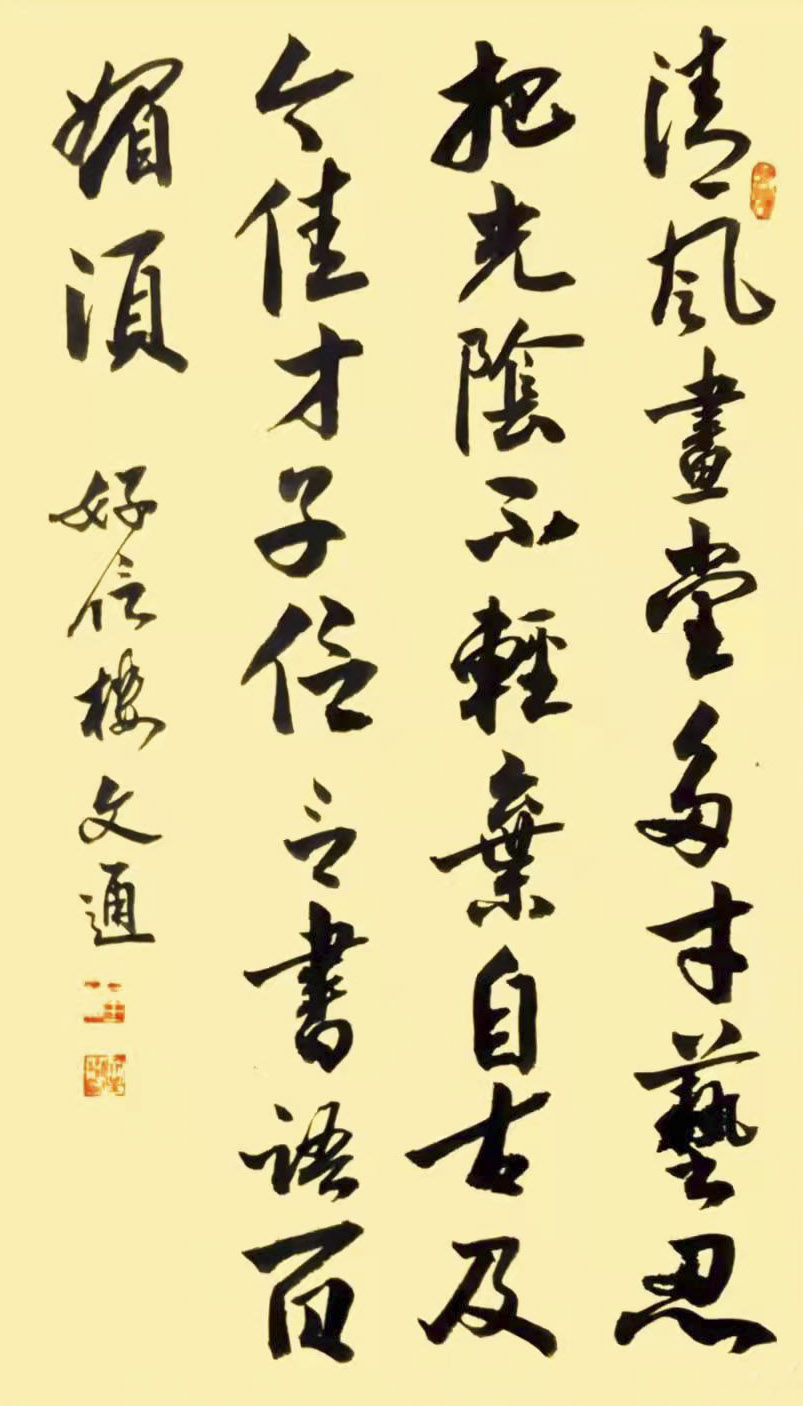 清風畫堂多才藝忍
把光陰不輕棄自古及
今佳才子信言書語百
媚須
好信樓文通